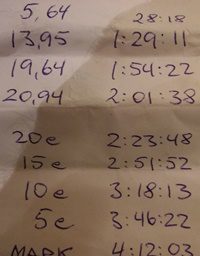 5,64 28:18
13,95 1:29:11
19,64 1:54:22
20,94 2:01:38
20e 2:23:48
15e 2:51:52
10e 3:18:13
5e 3:46:22
MAPK 4:12:03